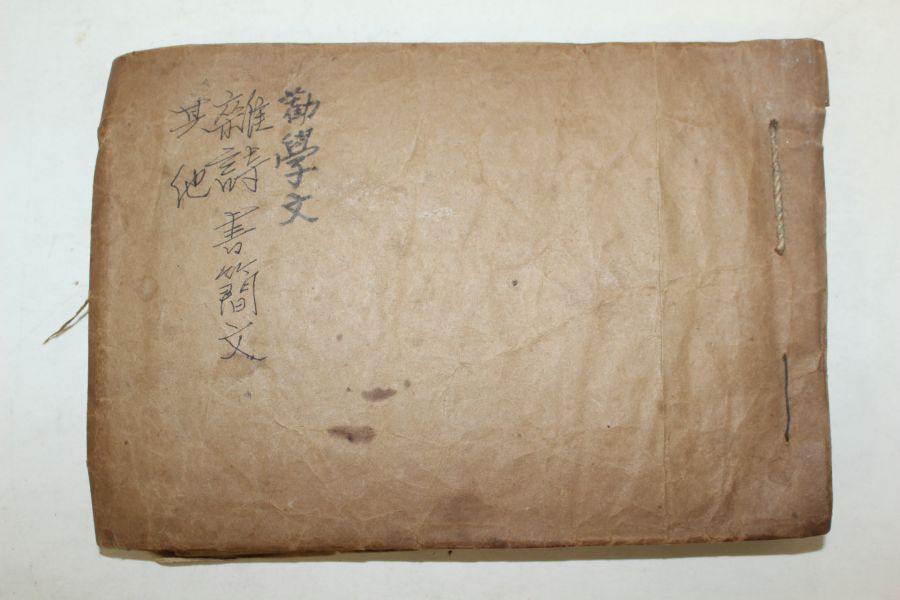 勸學文
雜詩 書簡文
其他